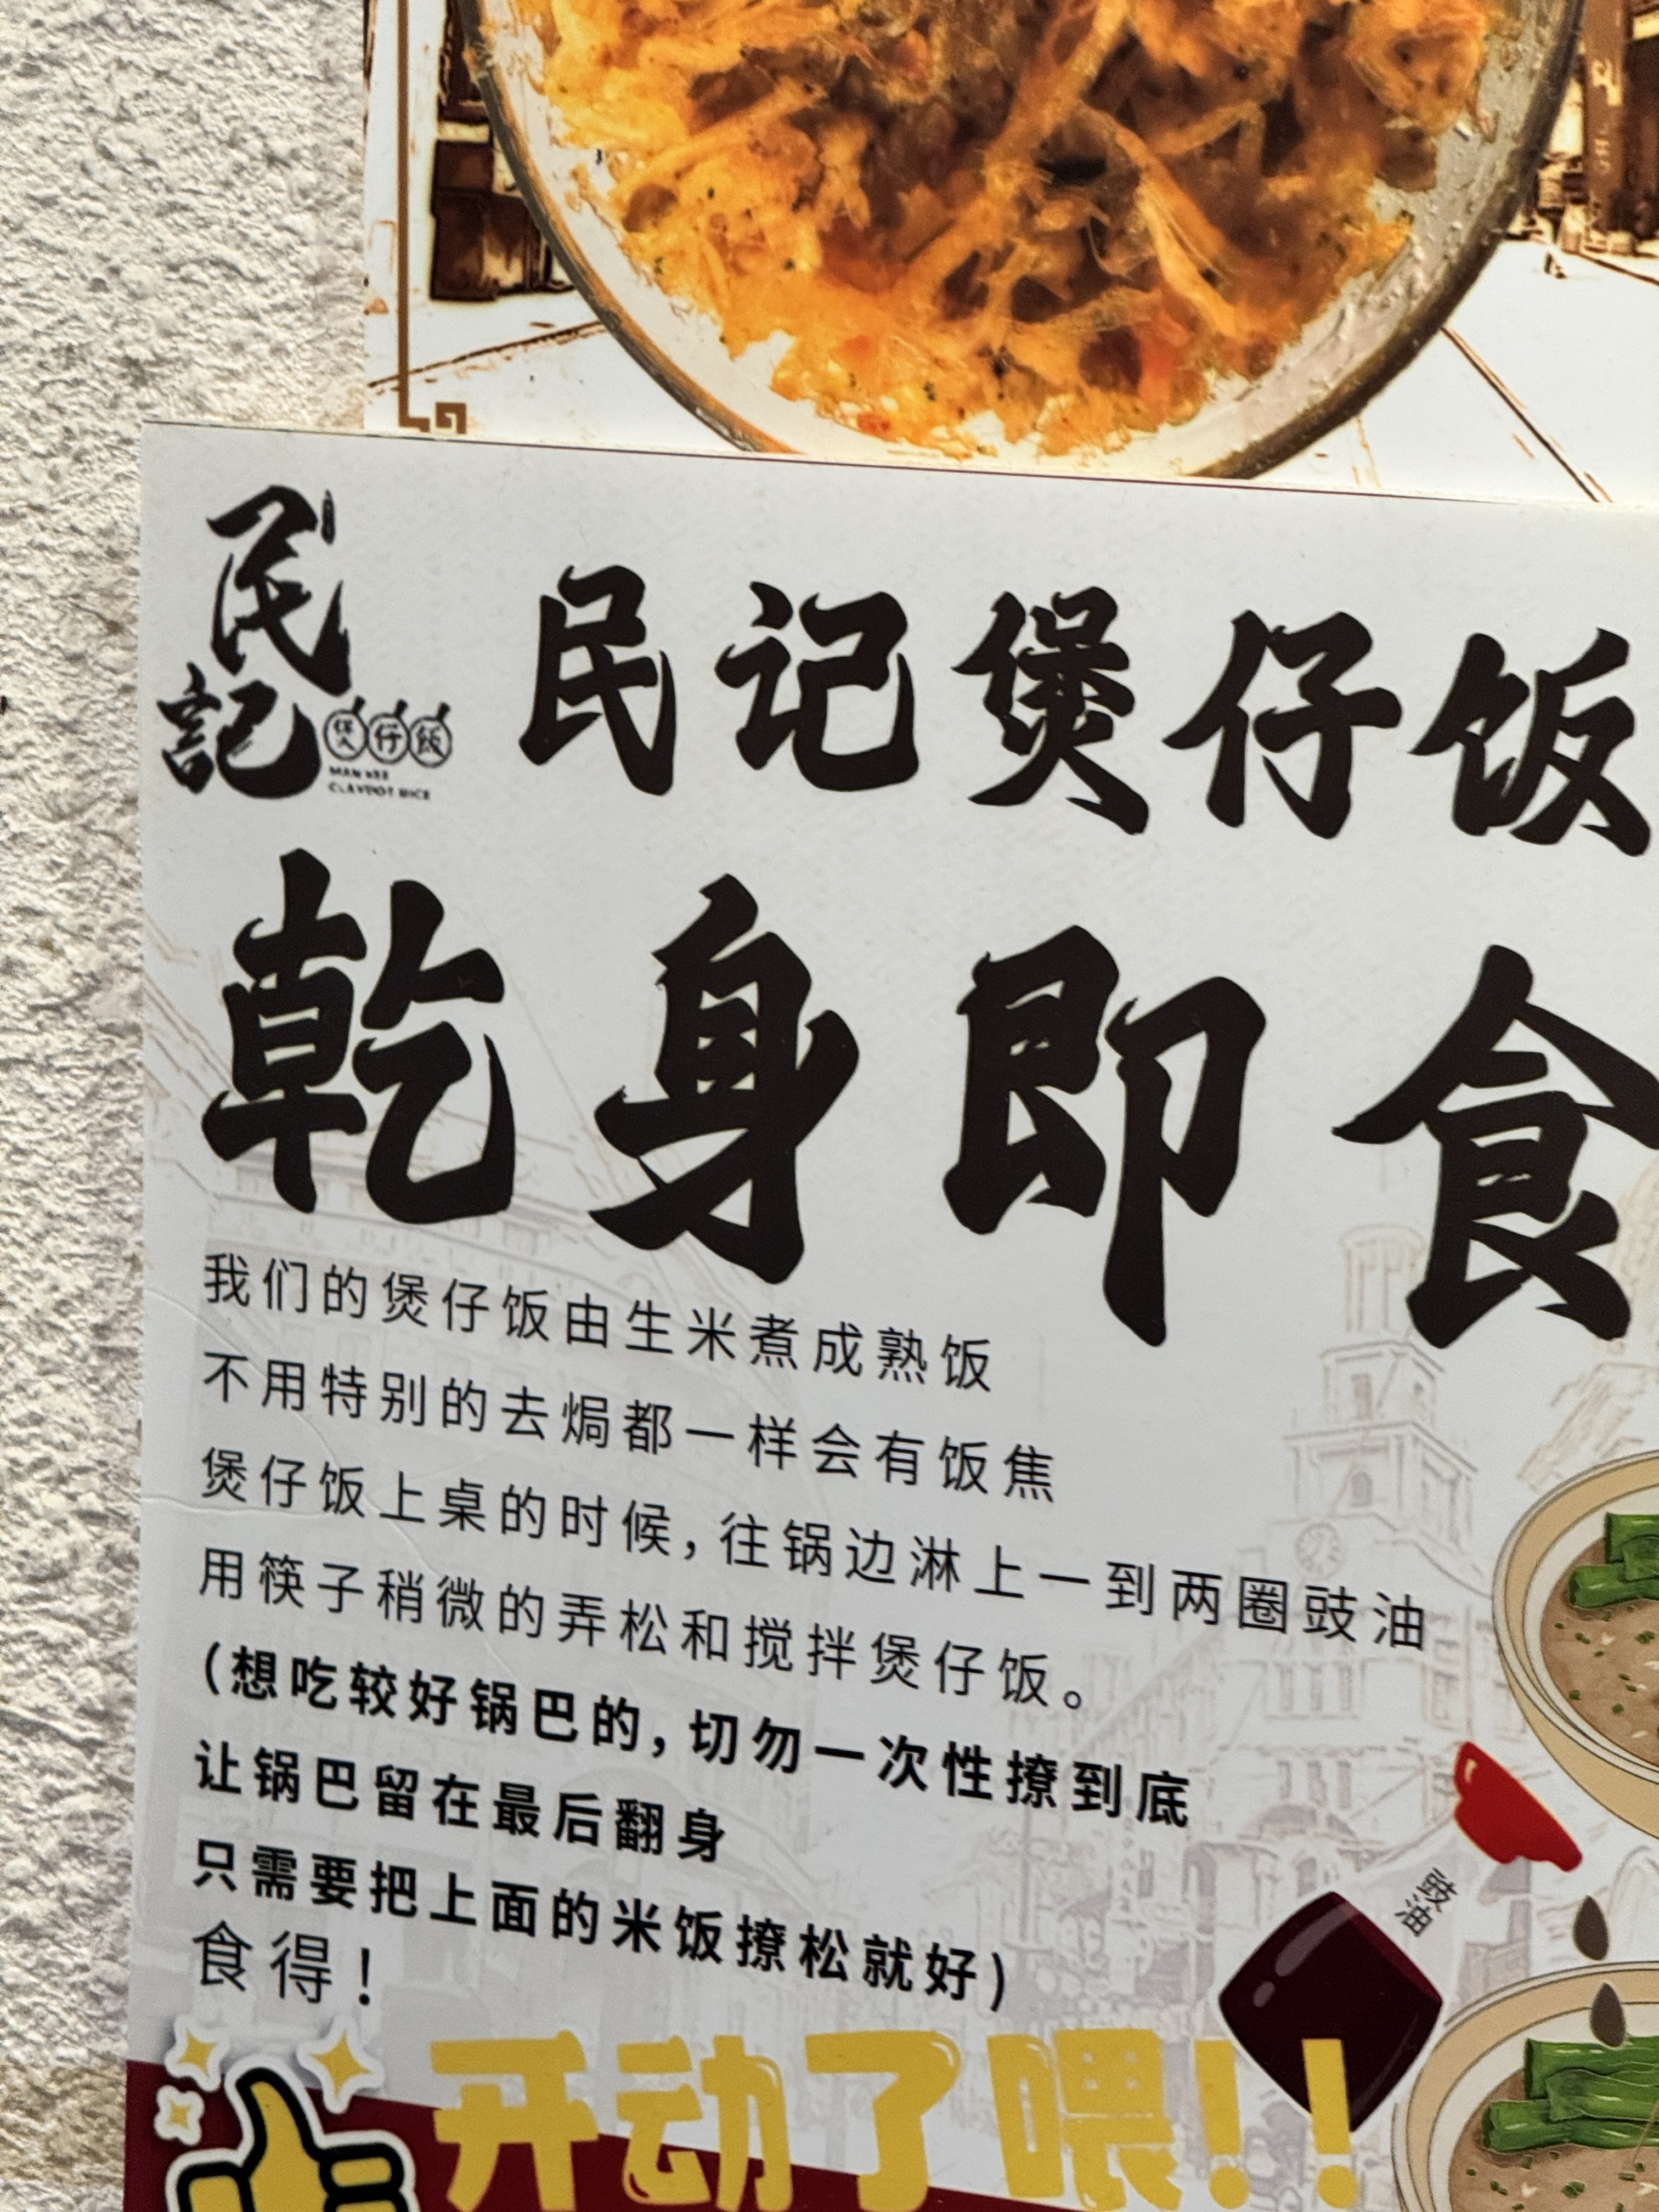 民
記
煲仔飯
MAN KEE
CLAYPOT RICE
民记煲仔饭
乾身即食
我们的煲仔饭由生米煮成熟饭
不用特别的去焗都一样会有饭焦
煲仔饭上桌的时候，往锅边淋上一到两圈豉油
用筷子稍微的弄松和搅拌煲仔饭。
(想吃较好锅巴的，切勿一次性撩到底
让锅巴留在最后翻身
只需要把上面的米饭撩松就好)
食得！
豉油
开动了喂!!